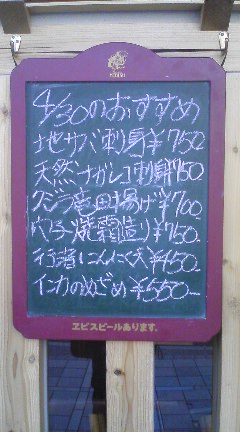 4/30のおすすめ
地サバ刺身¥750
天然ナガレコ刺身¥750
クジラ竜田揚げ¥700
穴子焼霜造り¥750-
行者にんにく天¥450-
インカのめざめ¥550-
ヱビスビールあります。